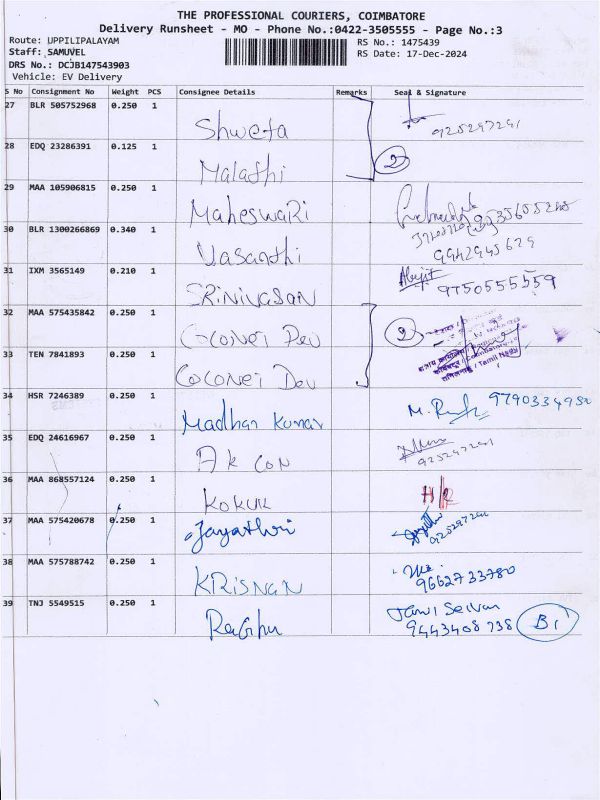 THE PROFESSIONAL COURIERS, COIMBATORE
Delivery Runsheet - MO - Phone No.:0422-3505555 - Page No.:3
Route: UPPILIPALAYAM
RS No.: 1475439
Staff: SAMUVEL
RS Date: 17-Dec-2024
DRS No.: DCJB147543903
Vehicle: EV Delivery
S No Consignment No Weight PCS Consignee Details Remarks Seal & Signature
27 BLR 505752968 0.250 1 Shweta 925297291
28 EDQ 23286391 0.125 1 Malathi 2
29 MAA 105906815 0.250 1 Maheswari
30 BLR 1300266869 0.340 1 Vasanthi 9942945629
31 IXM 3565149 0.210 1 SRINIVASAN Abijit 9750555559
32 MAA 575435842 0.250 1 Colonel Dev 2
33 TEN 7841893 0.250 1 Colonel Dev
34 HSR 7246389 0.250 1 Madhan Kumar M. 9790334950
35 EDQ 24616967 0.250 1 A K CON 925297291
36 MAA 868557124 0.250 1 KOKUL H/R
37 MAA 575420678 0.250 1 Jayathri
38 MAA 575788742 0.250 1 KRISNAN 9662733780
39 TNJ 5549515 0.250 1 Raghu Tamil Selvan
9443408738 B1